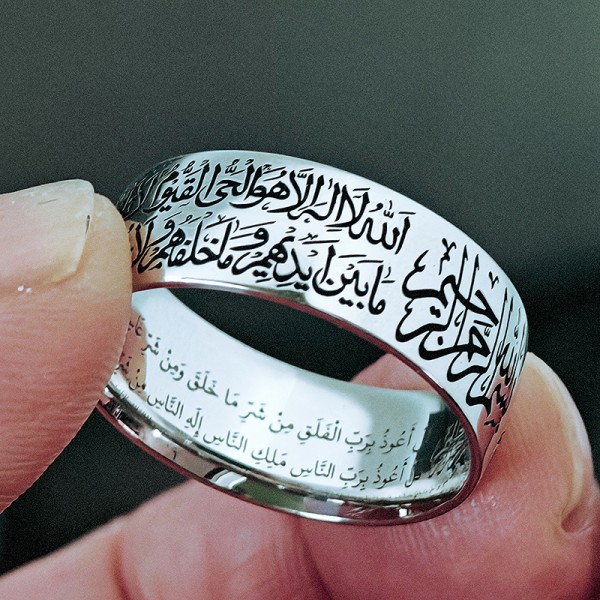 بسم الله الرحمن الرحيم
اَللهُ لَا اِلٰهَ اِلَّا هُوَ الْحَیُّ الْقَیُّوْمُ لَا
مَا بَیْنَ اَیْدِیْهِمْ وَمَا خَلْفَهُمْ وَلَا
أَعُوذُ بِرَبِّ الْفَلَقِ مِنْ شَرِّ مَا خَلَقَ وَمِنْ شَرِّ
أَعُوذُ بِرَبِّ النَّاسِ مَلِكِ النَّاسِ إِلَهِ النَّاسِ مِنْ